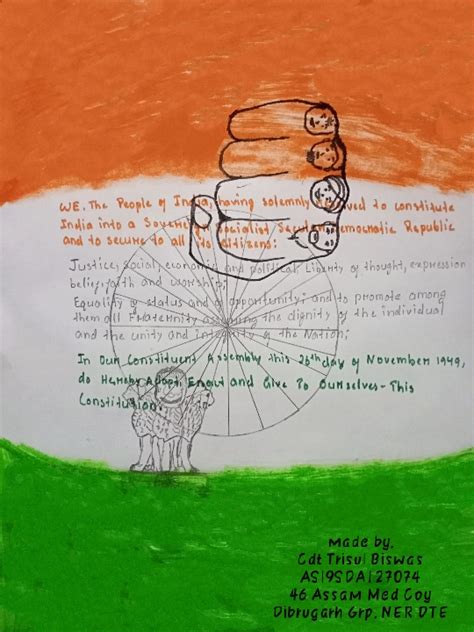 WE, The People of India, having solemnly resolved to constitute
India into a Sovereign Socialist Secular Democratic Republic
and to secure to all its citizens:
Justice, Social, economic and political; Liberty of thought, expression
belief, faith and worship;
Equality of status and of opportunity; and to promote among
them all Fraternity assuring the dignity of the individual
and the unity and integrity of the Nation;
In Our Constituent Assembly this 26th day of November 1949,
do Hereby Adopt, Enact and Give To Ourselves - This
Constitution.
Made by,
Cdt Trisul Biswas
AS19SDA127074
46 Assam Med Coy
Dibrugarh Grp, NER DTE